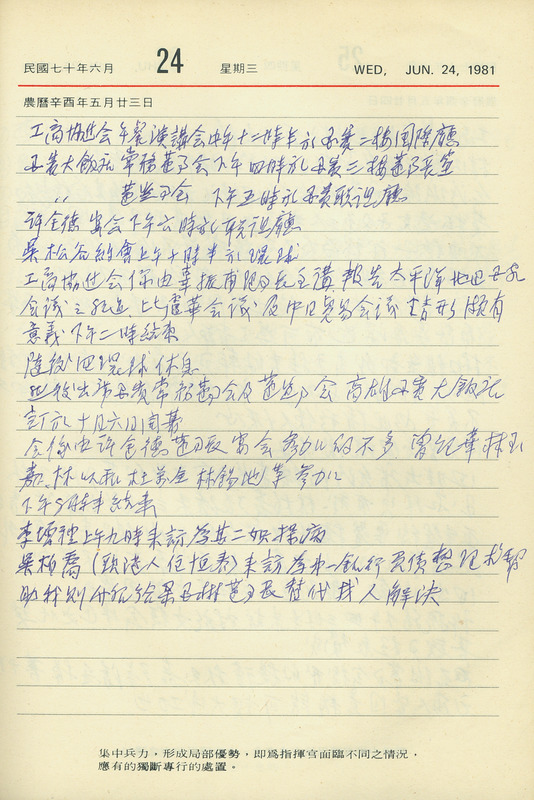 民國七十年六月 24 星期三 WED, JUN. 24, 1981
農曆辛酉年五月廿三日
工商協進會午餐演講會中午十二時半於國賓二樓國際廳
國賓大飯店常務董事會下午四時於國賓三樓董事長室
〃 董監事會 下午五時於國賓聯誼廳
許金德宴會下午六時於聯誼廳
吳松谷約會上午十時半於環球
工商協進會係由辜振甫理事長主講報告太平洋地區
會議之經過 比盧華會議及中日貿易會議情形頗有
意義下午二時結束
隨後回環球休息
出席國賓常務董事會及董監事會 高雄國賓大飯店
訂於十月六日開幕
會後由許金德董事長宴會參加的不多 曾紀華 林玉
嘉 林以和 杜萬全 林錫池等參加
下午8時半結束
李 上午九時來訪為其二姐探病
吳柏喬 ( 人 ) 來訪為 銀行 債 幫
助我則介紹給 董事長 替代找人解決
集中兵力,形成局部優勢,即爲指揮官面臨不同之情況,
應有的獨斷專行的處置。